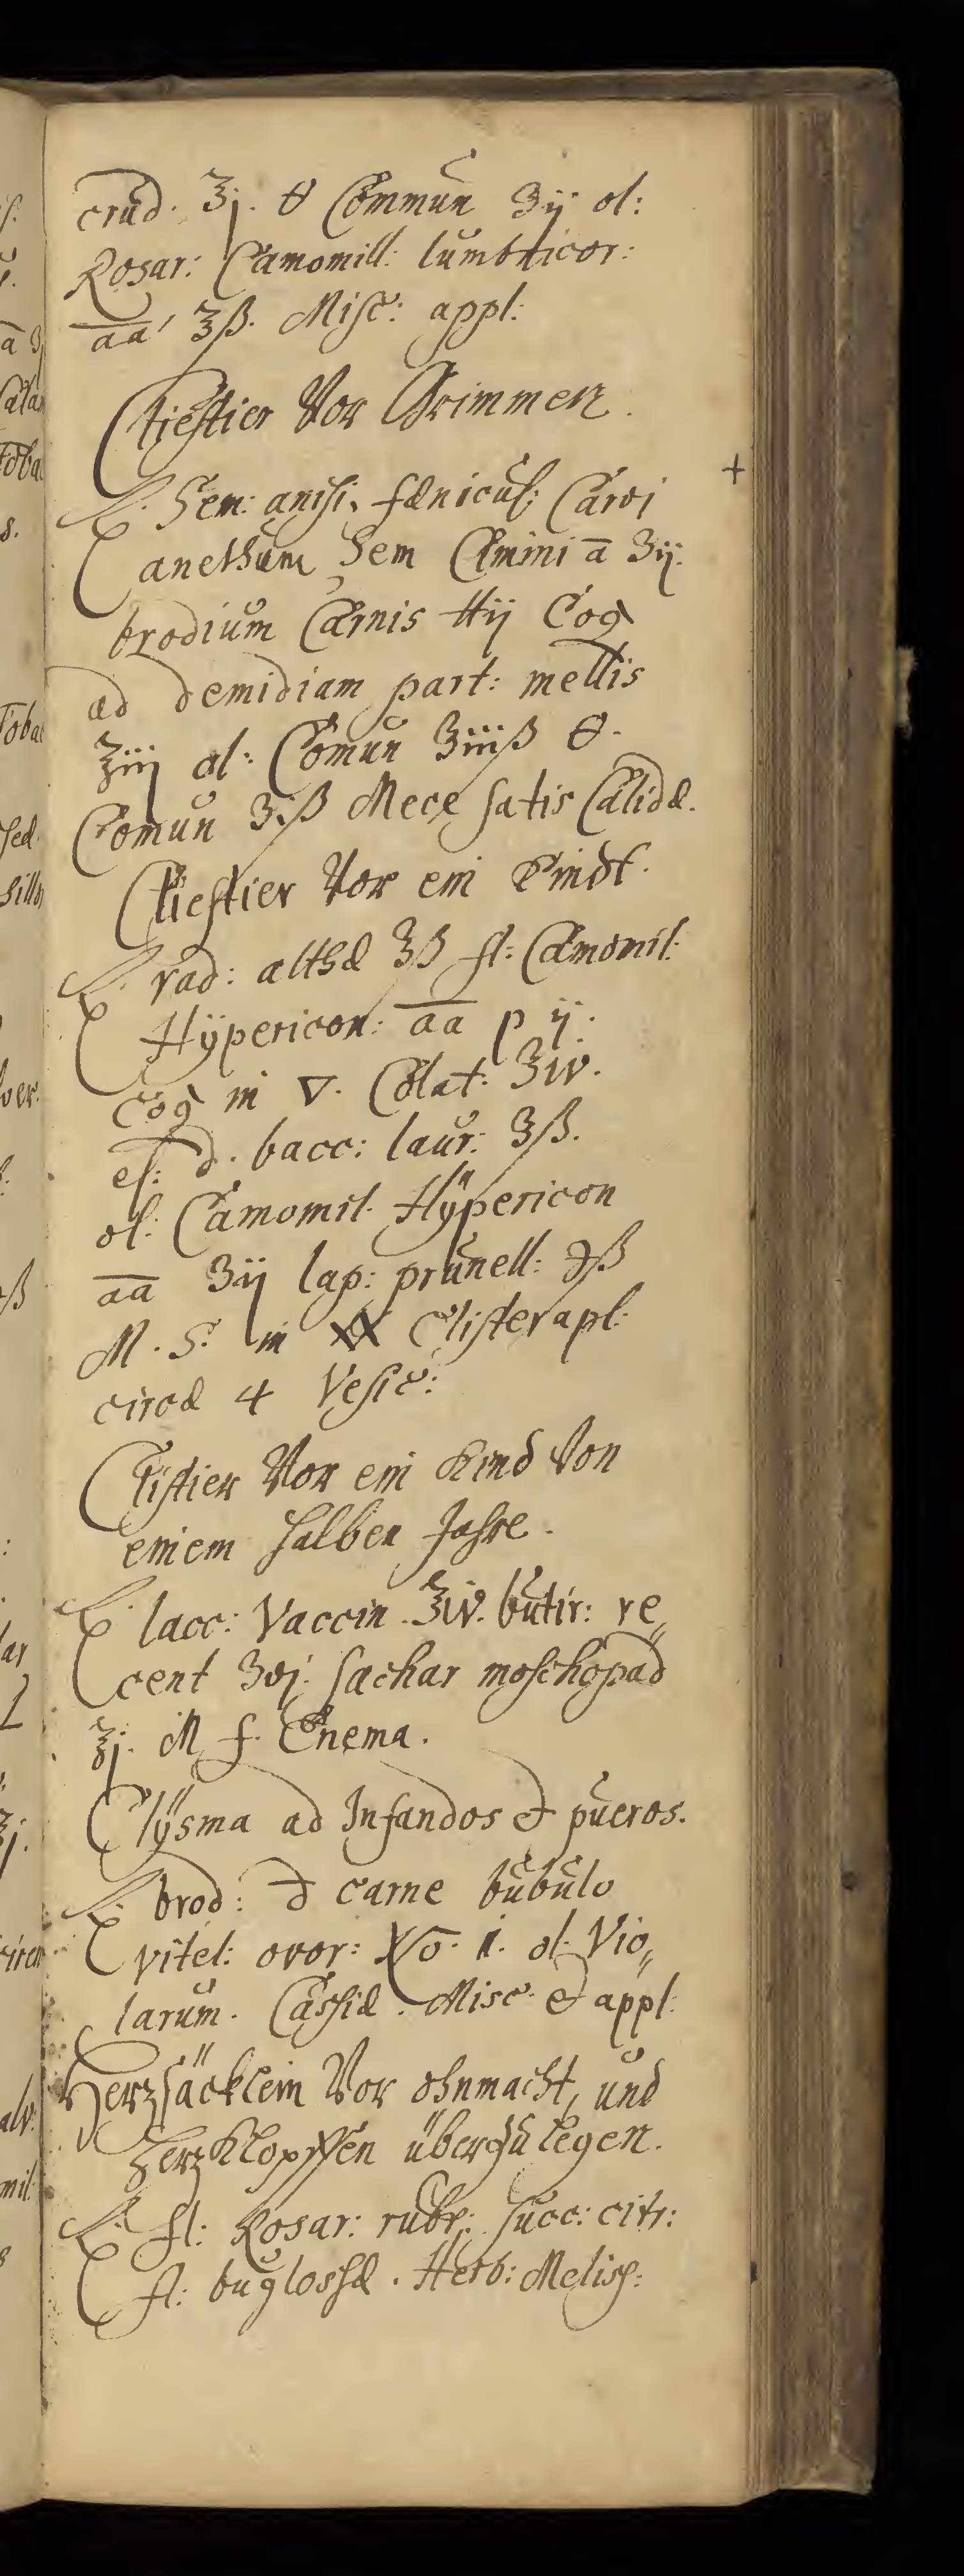 crud. ℥j. ϴ Commun ʒij ol:
Rosar: Camomill: lumbricor:
aa ℥ß. Misc: appl:
Cliestier Vor Grimmen.
℞. Sem: anisi, fænicul: Carvi
anethum Sem Cimini ā ʒij.
brodium Carnis ℔ij Coq
ad demidiam part: mellis
℥iij ol: Comun ʒiiiß ϴ.
Comun ʒiß Mece satis Calidæ.
Cliestier Vor ein Kindt.
℞. rad: althæ ℥ß fl: Camomil:
Hÿpericon: aa p ij.
Coq in ▽. Colat: ʒiv.
el: d. bacc: laur: ʒß.
ol: Camomil. Hÿpericon
aa ʒij lap: prunell: ℈ß
M. S. in Clister apl:
circa 4 Vesic:
Clistier Vor ein Kind Von
einem halben Jahre.
℞. lacc: Vaccin. ℥iv. butir: re„
cent ʒvj. sachar moschopad
℥j. M f. Enema.
Clÿsma ad Infandos et pueros.
℞. brod: d carne bubulo
vitel: ovor: No. i. ol: Vio„
larum. Cassiæ. Misc. et appl:
Herzsäcklein Vor ohnmacht, und
Herz Klopffen überzulegen.
℞. fl: Rosar: rubr: succ: citr:
fl: buglossæ. Herb: Meliss: